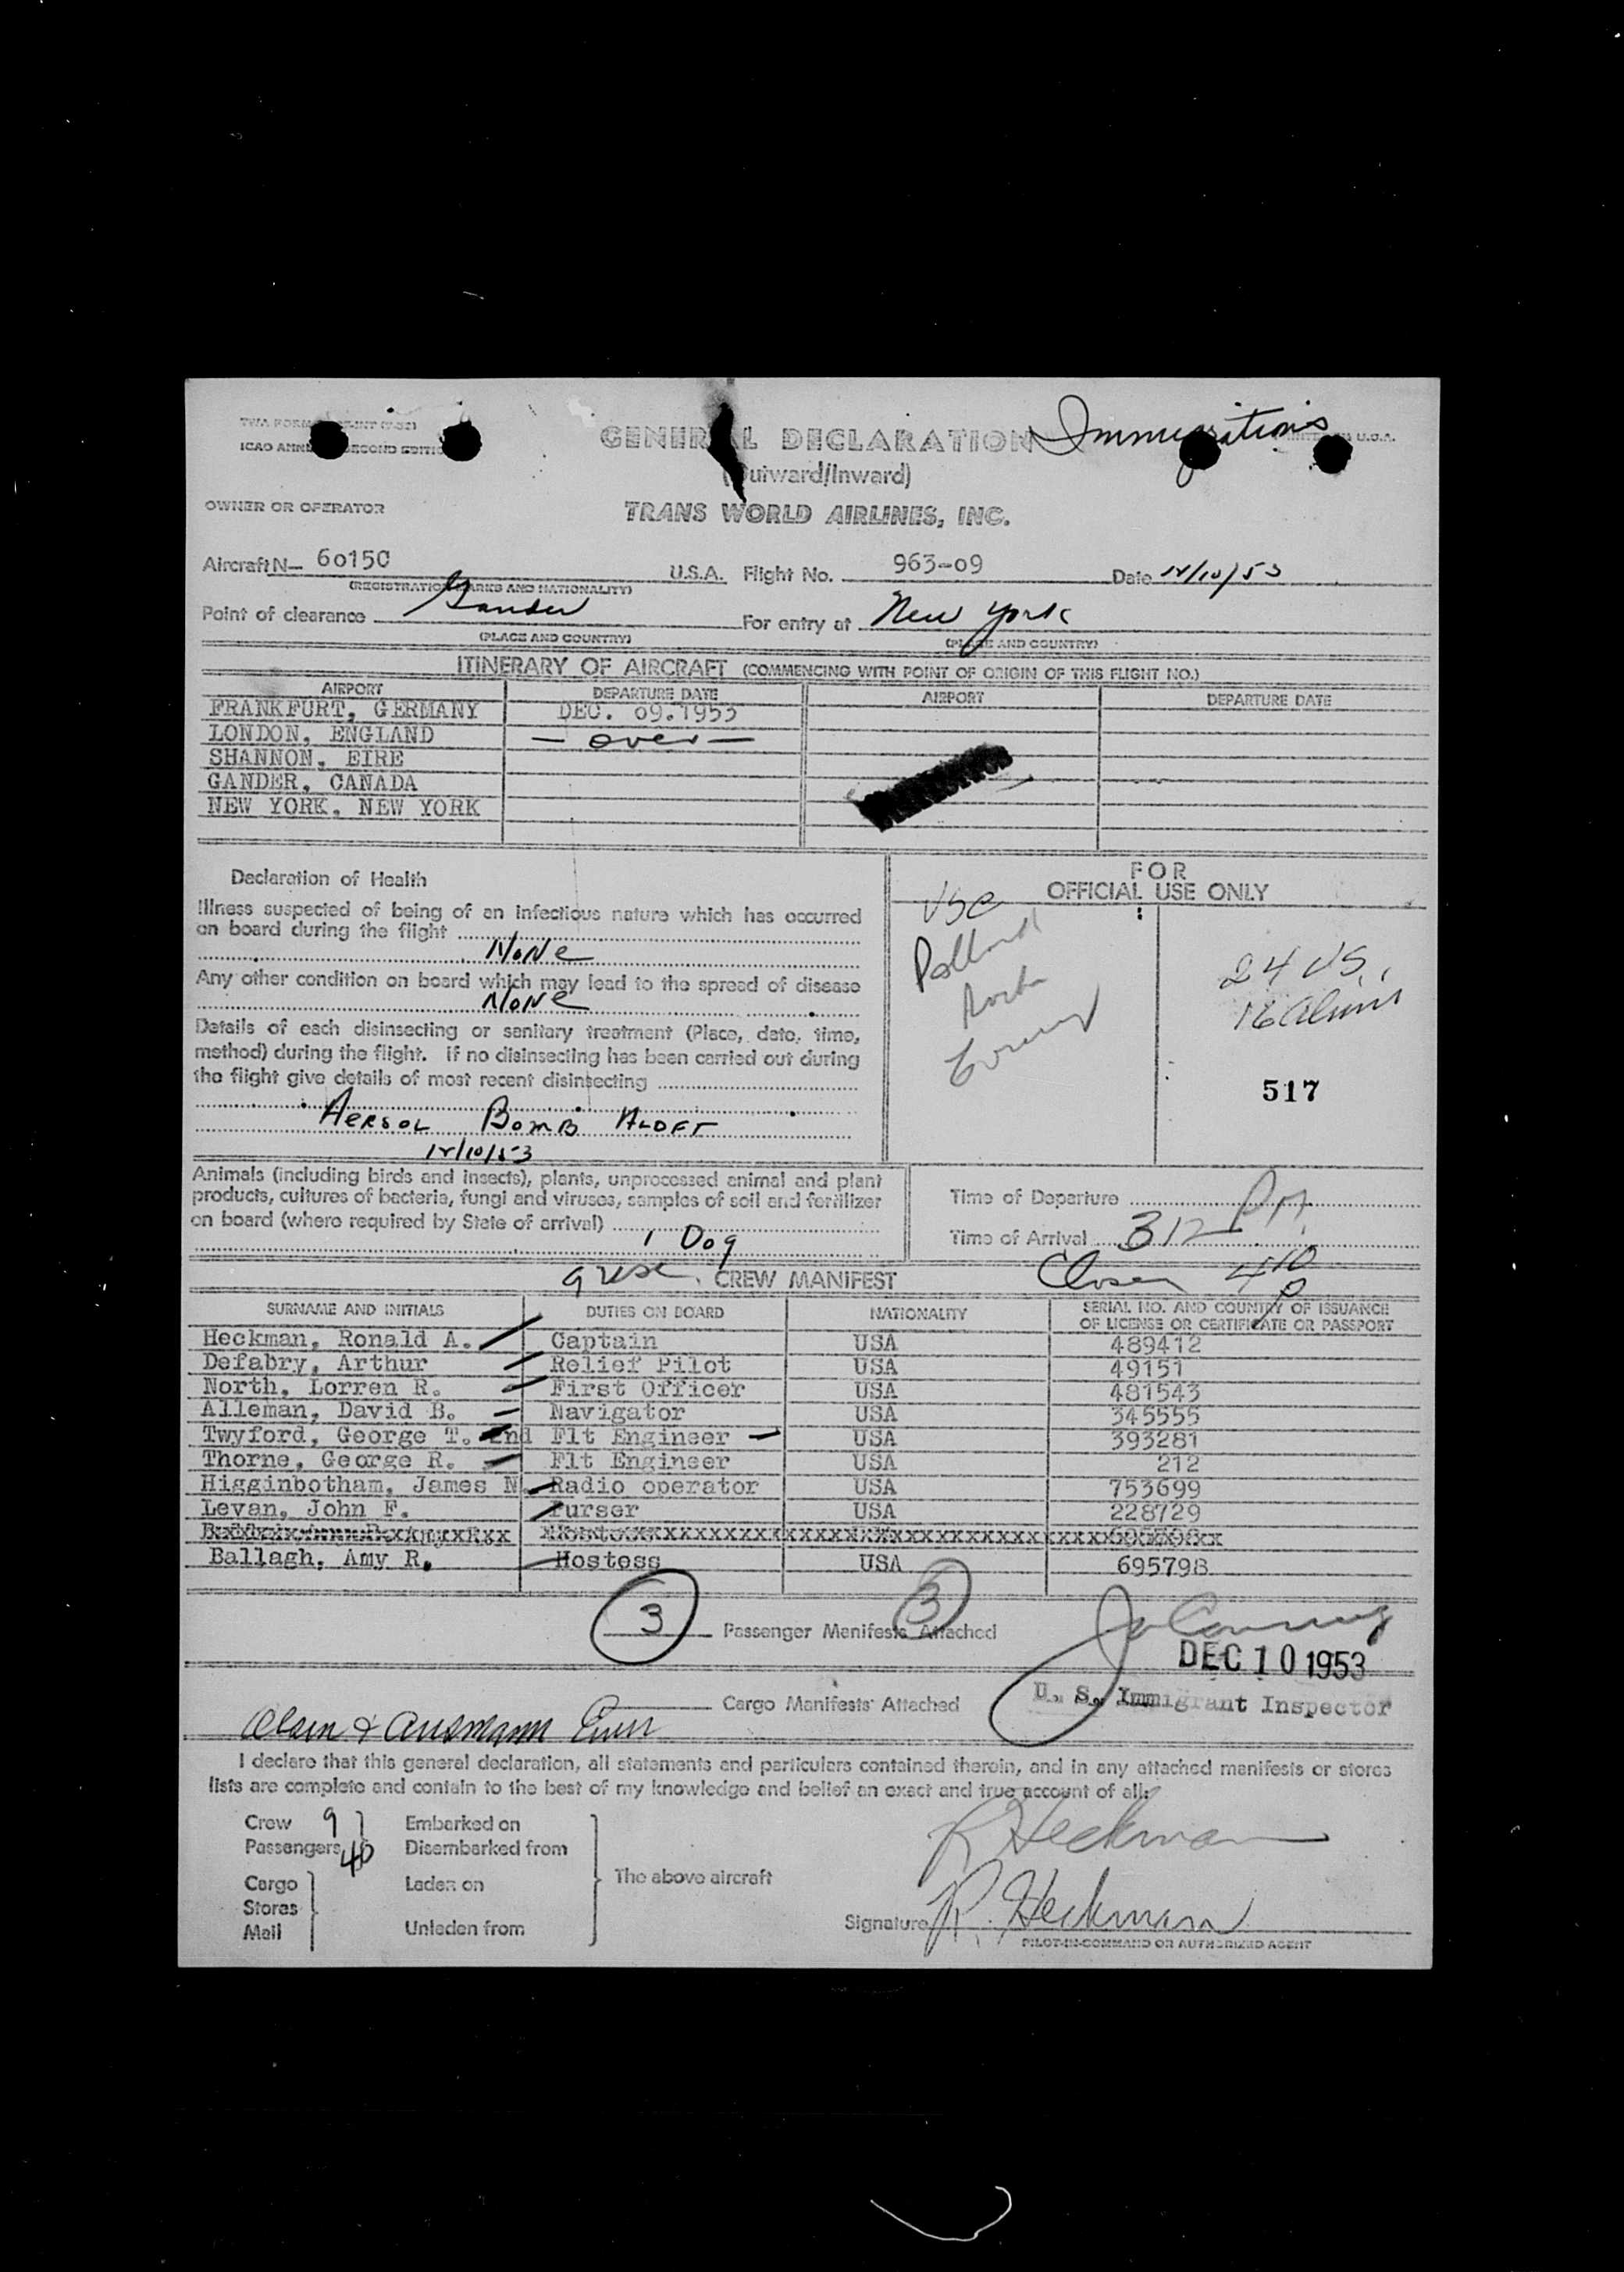 GENERAL DECLARATION Immigrations
(Outward/Inward)
OWNER OR OPERATOR
TRANS WORLD AIRLINES, INC.
Aircraft N— 60150 U.S.A. Flight No. 963-09 Date 12/10/53
(REGISTRATION MARKS AND NATIONALITY)
Point of clearance Gander For entry at New York
(PLACE AND COUNTRY) (PLACE AND COUNTRY)
ITINERARY OF AIRCRAFT (COMMENCING WITH POINT OF ORIGIN OF THIS FLIGHT NO.)
AIRPORT DEPARTURE DATE AIRPORT DEPARTURE DATE
FRANKFURT, GERMANY DEC. 09.1953
LONDON, ENGLAND — over —
SHANNON, EIRE
GANDER, CANADA
NEW YORK, NEW YORK
Declaration of Health
Illness suspected of being of an infectious nature which has occurred
on board during the flight
None
Any other condition on board which may lead to the spread of disease
None
Details of each disinsecting or sanitary treatment (Place, date, time,
method) during the flight. If no disinsecting has been carried out during
the flight give details of most recent disinsecting
AERSOL BOMB ALOFT
12/10/53
FOR
OFFICIAL USE ONLY
24 US
16 aliens
517
Animals (including birds and insects), plants, unprocessed animal and plant
products, cultures of bacteria, fungi and viruses, samples of soil and fertilizer
on board (where required by State of arrival)
1 Dog
Time of Departure
Time of Arrival 312 PM
CREW MANIFEST
9 usc Closed 4 10 p
SURNAME AND INITIALS DUTIES ON BOARD NATIONALITY SERIAL NO. AND COUNTRY OF ISSUANCE OF LICENSE OR CERTIFICATE OR PASSPORT
Heckman, Ronald A. Captain USA 489412
Defabry, Arthur Relief Pilot USA 49151
North, Lorren R. First Officer USA 481543
Alleman, David B. Navigator USA 345555
Twyford, George T. 2nd Flt Engineer USA 393281
Thorne, George R. Flt Engineer USA 212
Higginbotham, James N. Radio operator USA 753699
Levan, John F. Purser USA 228729
Ballagh, Amy R. Hostess USA 695798
3 Passenger Manifests Attached 3
DEC 10 1953
U. S. Immigrant Inspector
Cargo Manifests Attached
I declare that this general declaration, all statements and particulars contained therein, and in any attached manifests or stores
lists are complete and contain to the best of my knowledge and belief an exact and true account of all:
Crew 9 Embarked on
Passengers 40 Disembarked from
The above aircraft
Cargo Laden on
Stores
Mail Unladen from
R Heckman
Signature R. Heckman
PILOT-IN-COMMAND OR AUTHORIZED AGENT